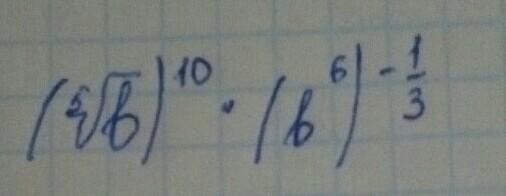 (⁵√b)¹⁰ · (b⁶)^(-1/3)